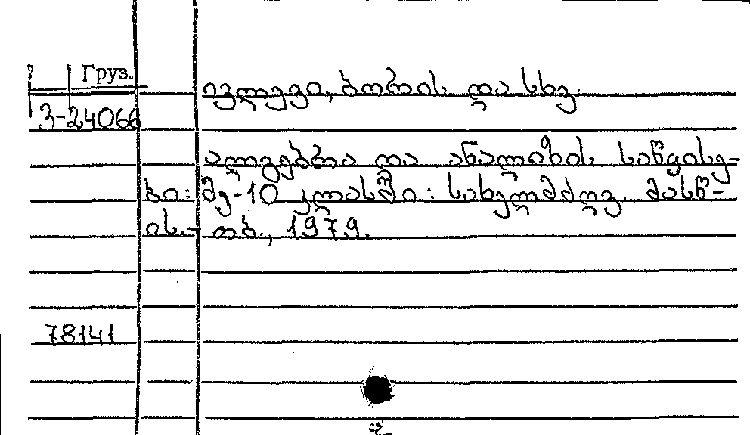 Груз.
ივლევი, ბორის. და სხვ.
3-24066
ალგებრა და ანალიზის საწყისე-
ბი: მე-10 კლასში: სახელმძღვ. მასწ-
ის.- თბ., 1979.
78141